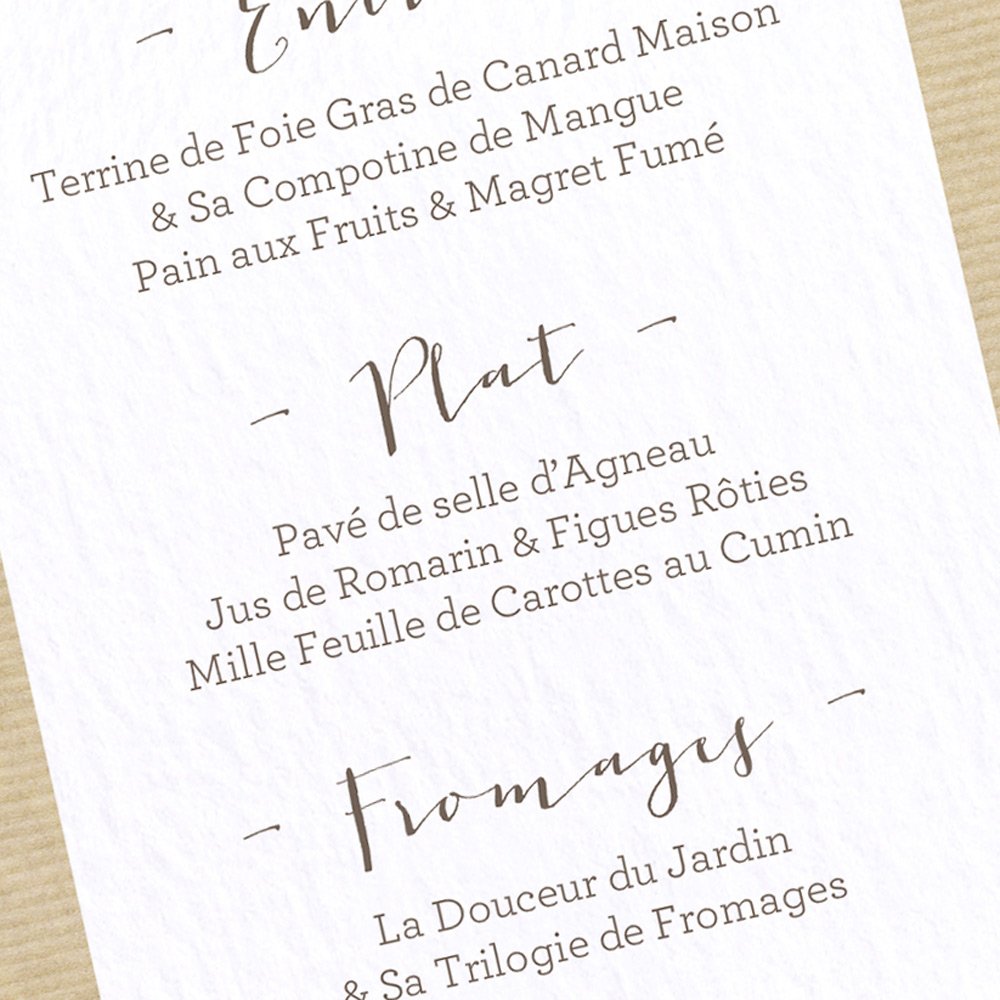 Terrine de Foie Gras de Canard Maison
& Sa Compotine de Mangue
Pain aux Fruits & Magret Fumé
- Plat -
Pavé de selle d'Agneau
Jus de Romarin & Figues Rôties
Mille Feuille de Carottes au Cumin
- Fromages -
La Douceur du Jardin
& Sa Trilogie de Fromages